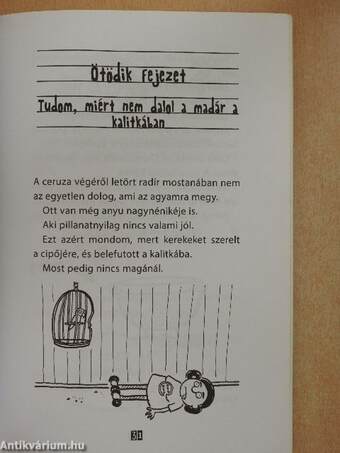 Ötödik fejezet
Tudom, miért nem dalol a madár a
kalitkában
A ceruza végéről letört radír mostanában nem
az egyetlen dolog, ami az agyamra megy.
Ott van még anyu nagynénikéje is.
Aki pillanatnyilag nincs valami jól.
Ezt azért mondom, mert kerekeket szerelt
a cipőjére, és belefutott a kalitkába.
Most pedig nincs magánál.
31
Antikvárium.hu